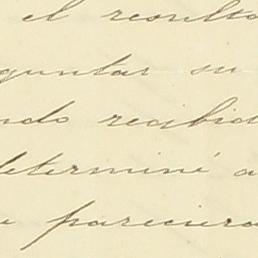 el result
guntar su
ndo recibid
determiné a
pareciera